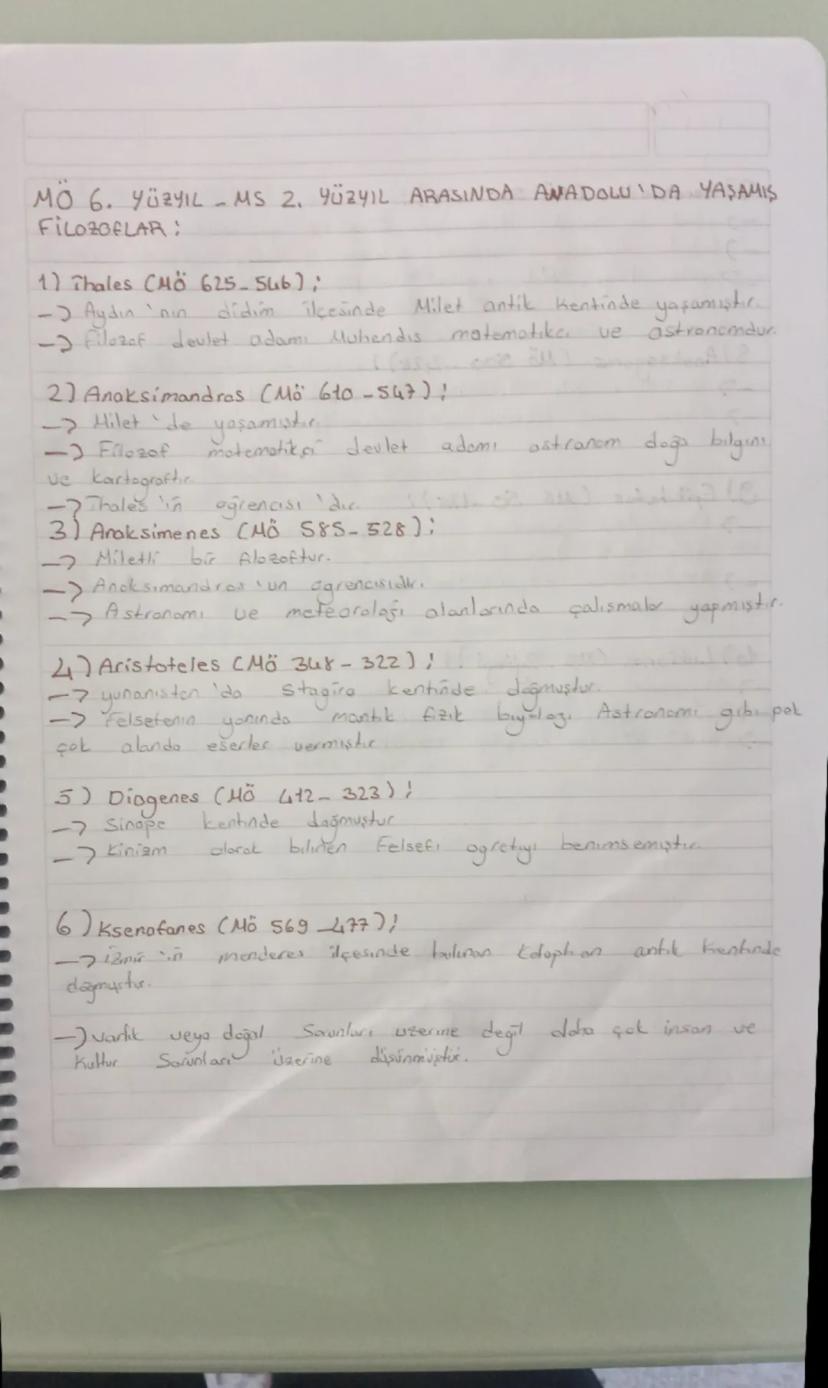 MÖ 6. YÜZYIL - MS 2. YÜZYIL ARASINDA ANADOLU'DA YAŞAMIŞ
FİLOZOFLAR:
1) Thales (MÖ 625-546);
-> Aydın'nın didim ilçesinde Milet antik kentinde yaşamıştır.
-> filozof devlet adamı Muhendis matematikci ve astronomdur.
2) Anaksimandros (MÖ 610-547);
-> Milet'de yaşamıştır.
-> Filozof matematikçi devlet adamı astranom doğa bilgini
ve kartograftır.
-> Thales'in ogrencisi'dir.
3) Anaksimenes (MÖ 585-528);
-> Miletli bir filozoftur.
-> Anaksimandros'un ogrencisidir.
-> Astronomi ve meteoroloji alanlarında çalışmalar yapmıştır.
4) Aristoteles (MÖ 348-322);
-> yunanistan'da Stagira kentinde doğmuştur.
-> Felsefenin yanında mantık fizik Astronomi gibi pek
çok alanda eserler vermiştir
5) Diogenes (MÖ 412-323);
-> Sinope kentinde doğmuştur
-> Kinizm olarak bilinen Felsefi ogretiyi benimsemiştir.
6) Ksenofanes (MÖ 569-477);
-> izmir'in menderes ilçesinde bulunan kolophon antik kentinde
doğmuştur.
-> varlık veya doğal Sorunları üzerine değil daha çok insan ve
Kultur Sorunları üzerine düşünmüştür.